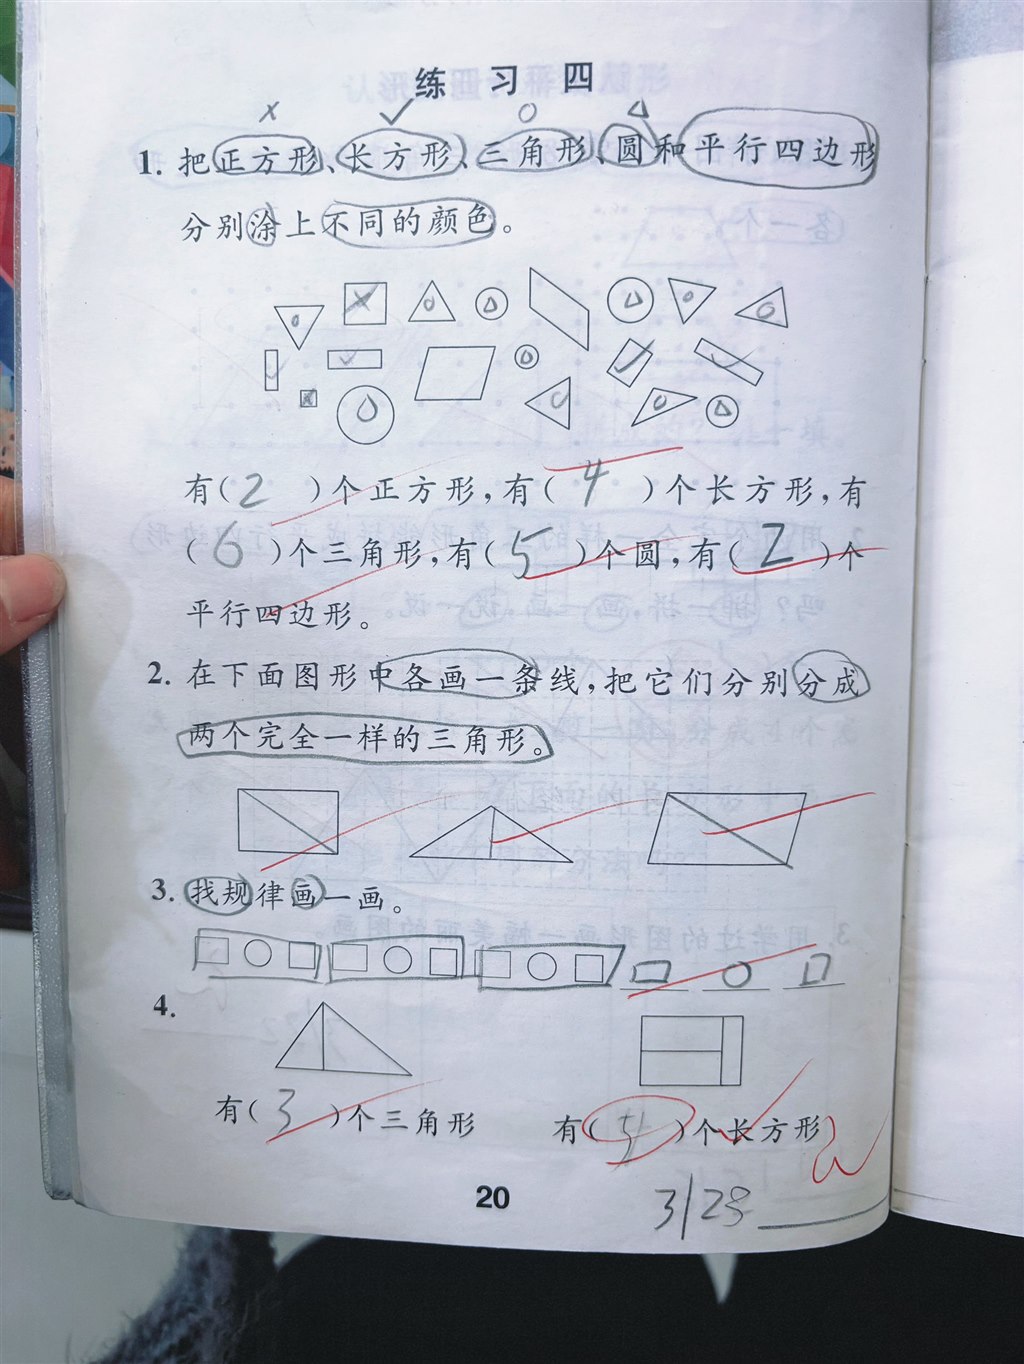 练习四
1. 把正方形、长方形、三角形、圆和平行四边形
分别涂上不同的颜色。
有(2)个正方形,有(4)个长方形,有
(6)个三角形,有(5)个圆,有(2)个
平行四边形。
2. 在下面图形中各画一条线,把它们分别分成
两个完全一样的三角形。
3. 找规律画一画。
4.
有(3)个三角形 有( )个长方形
20
3/28